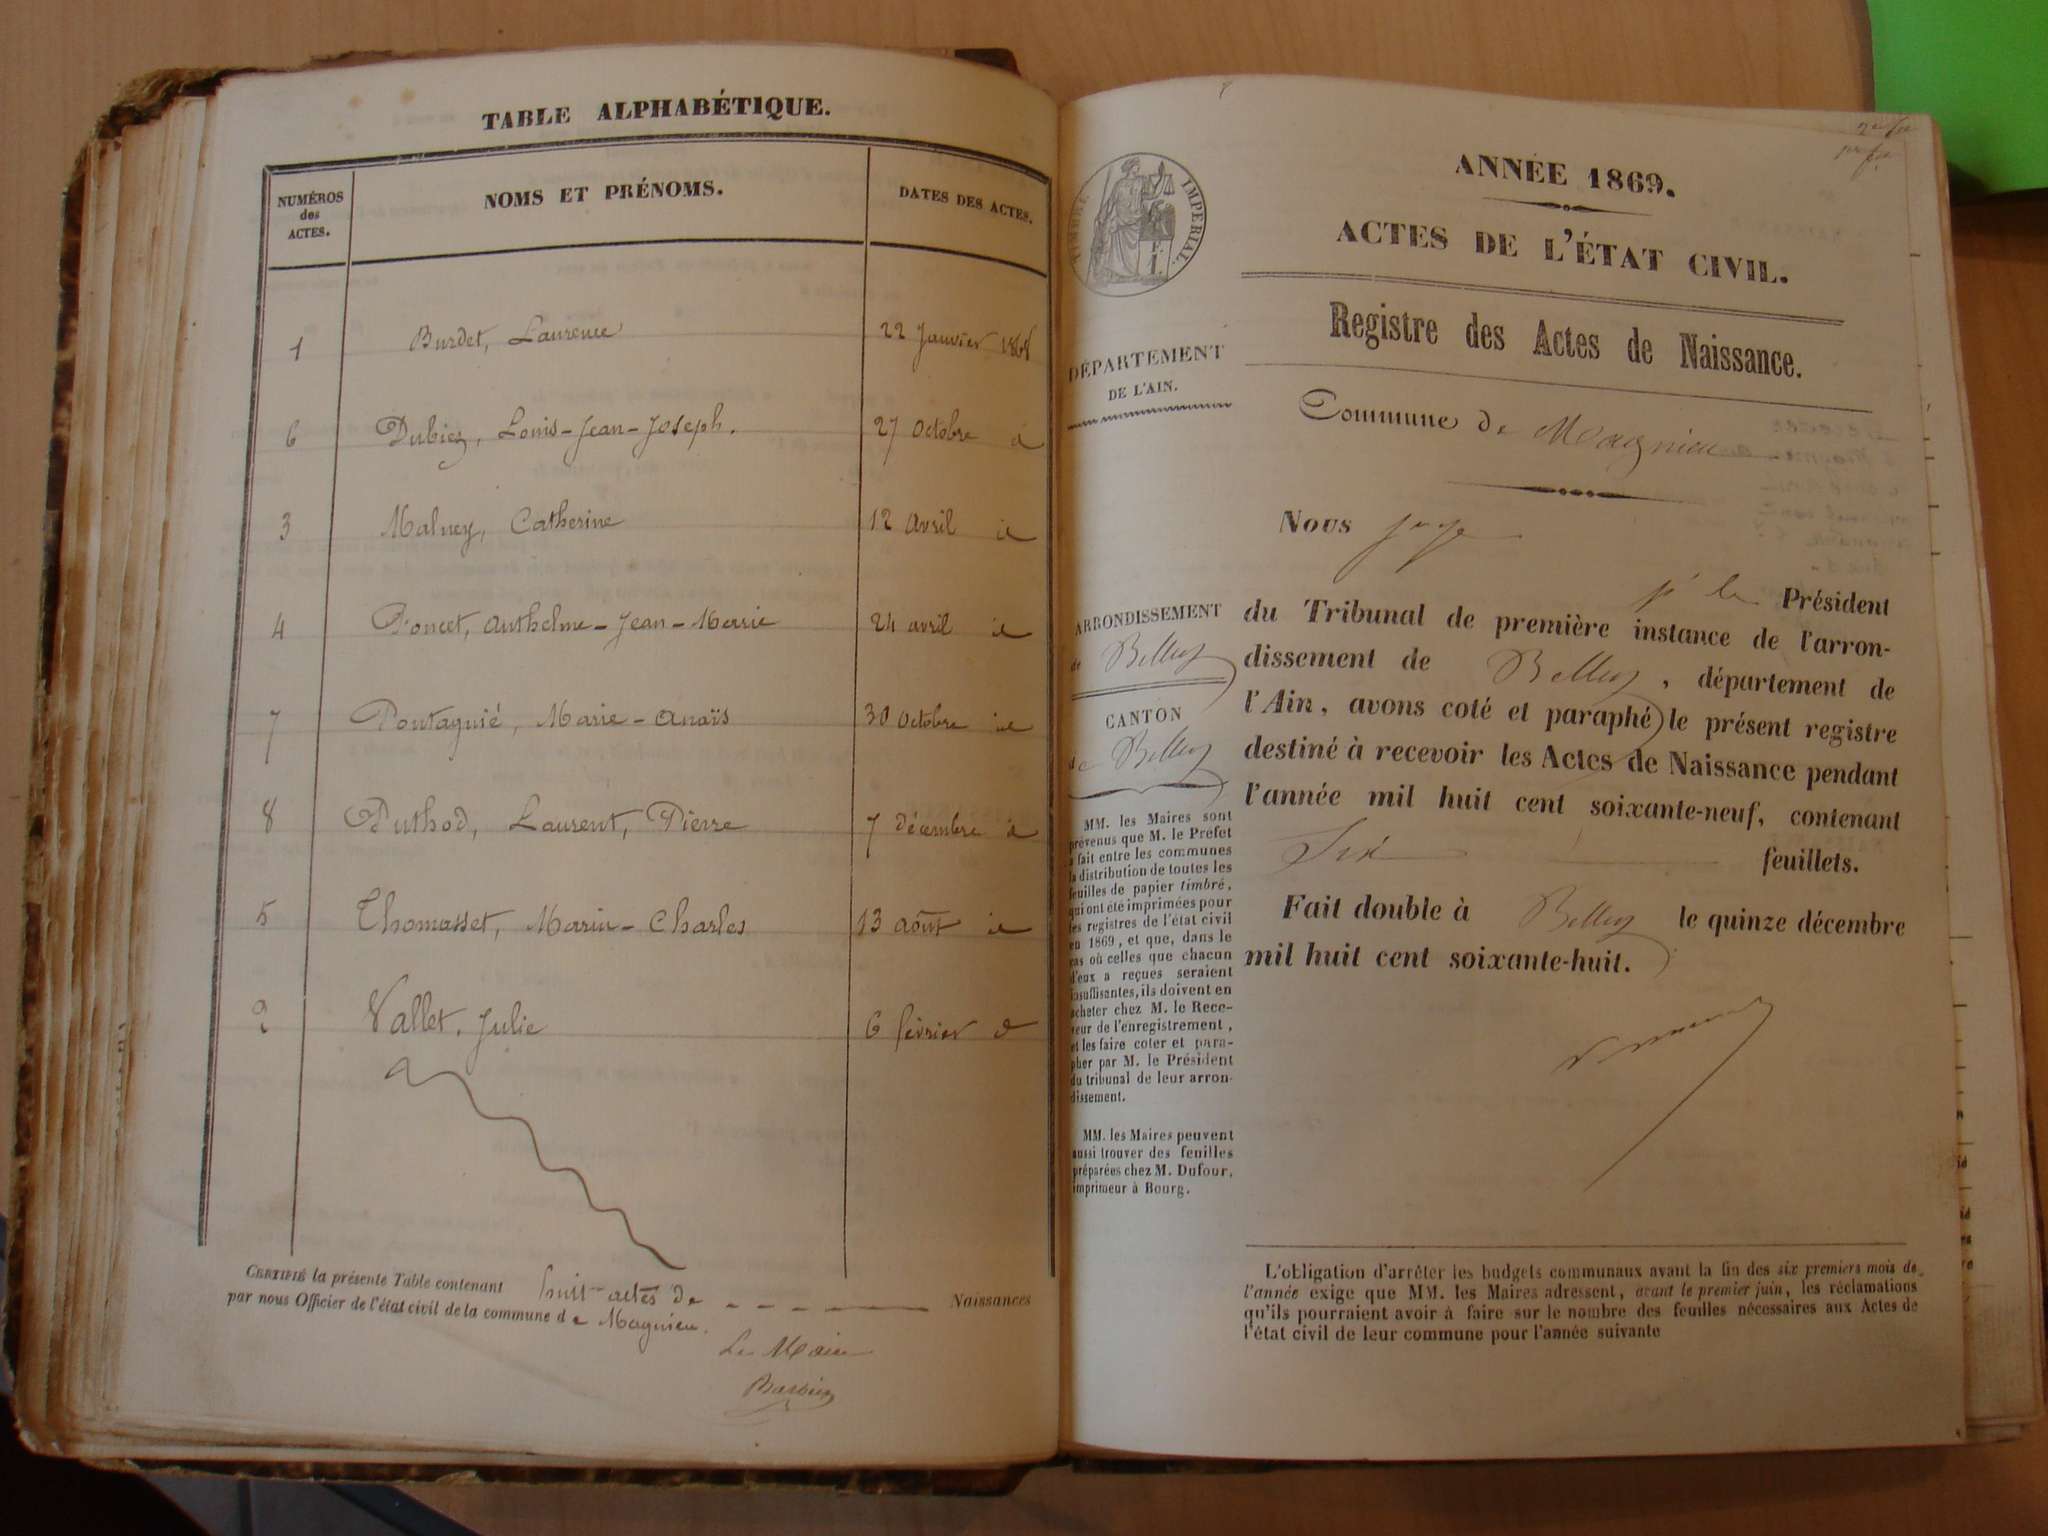 TABLE ALPHABÉTIQUE.
NUMÉROS des ACTES. NOMS ET PRÉNOMS. DATES DES ACTES.
1 Burdet, Laurence 22 Janvier 1868
6 Dubiez, Louis-Jean-Joseph. 27 Octobre id
3 Malney, Catherine 12 avril id
4 Poncet, Anthelme-Jean-Marie 24 avril id
7 Pontagnié, Marie-Anaïs 30 Octobre id
8 Puthod, Laurent, Pierre 7 décembre id
5 Thomasset, Marin-Charles 13 août id
2 Vallet, Julie 6 février id
CERTIFIÉ la présente Table contenant huit actes de Naissances
par nous Officier de l'état civil de la commune de Magnieu.
Le Maire
ANNÉE 1869.
ACTES DE L'ÉTAT CIVIL.
TIMBRE IMPÉRIAL.
Registre des Actes de Naissance.
DÉPARTEMENT
DE L'AIN.
Commune de Magnieu
Nous juge
pr le Président
du Tribunal de première instance de l'arron-
dissement de Belley, département de
l'Ain, avons coté et paraphé le présent registre
destiné à recevoir les Actes de Naissance pendant
l'année mil huit cent soixante-neuf, contenant
Six feuillets.
Fait double à Belley le quinze décembre
mil huit cent soixante-huit.
ARRONDISSEMENT
de Belley
CANTON
de Belley
MM. les Maires sont
prévenus que M. le Préfet
a fait entre les communes
la distribution de toutes les
feuilles de papier timbré,
qui ont été imprimées pour
les registres de l'état civil
en 1869, et que, dans le
cas où celles que chacun
d'eux a reçues seraient
insuffisantes, ils doivent en
acheter chez M. le Rece-
veur de l'enregistrement,
et les faire coter et para-
pher par M. le Président
du tribunal de leur arron-
dissement.
MM. les Maires peuvent
aussi trouver des feuilles
préparées chez M. Dufour,
imprimeur à Bourg.
L'obligation d'arrêter les budgets communaux avant la fin des six premiers mois de
l'année exige que MM. les Maires adressent, avant le premier juin, les réclamations
qu'ils pourraient avoir à faire sur le nombre des feuilles nécessaires aux Actes de
l'état civil de leur commune pour l'année suivante